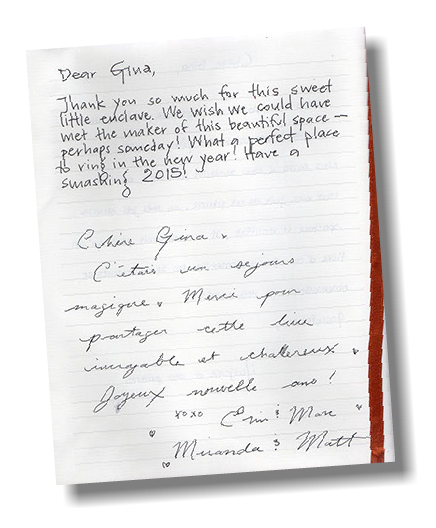 Dear Gina,
Thank you so much for this sweet
little enclave. We wish we could have
met the maker of this beautiful space —
perhaps someday! What a perfect place
to ring in the new year! Have a
smashing 2015!
Chère Gina,
C'étais un sejours
magique. Merci pour
partager cette lieu
incroyable et chalereux.
Joyeux nouvelle ano!
xoxo Erin & Marc
Miranda & Matt